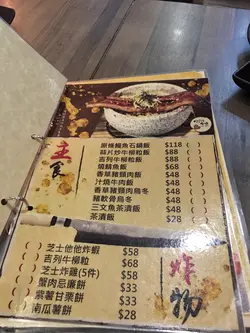 主食
原條鰻魚石鍋飯 $118
蒜片炒牛柳粒飯 $88
吉列牛柳粒飯 $88
燒鯖魚飯 $68
香草豬頸肉飯 $58
汁燒牛肉飯 $58
香草豬頸肉烏冬 $58
豬軟骨烏冬 $58
三文魚茶漬飯 $48
茶漬飯 $28
炸物
芝士他他炸蝦 $58
吉列牛柳粒 $68
芝士炸雞(5件) $58
蟹肉忌廉餅 $33
紫薯甘栗餅 $33
南瓜薯餅 $28